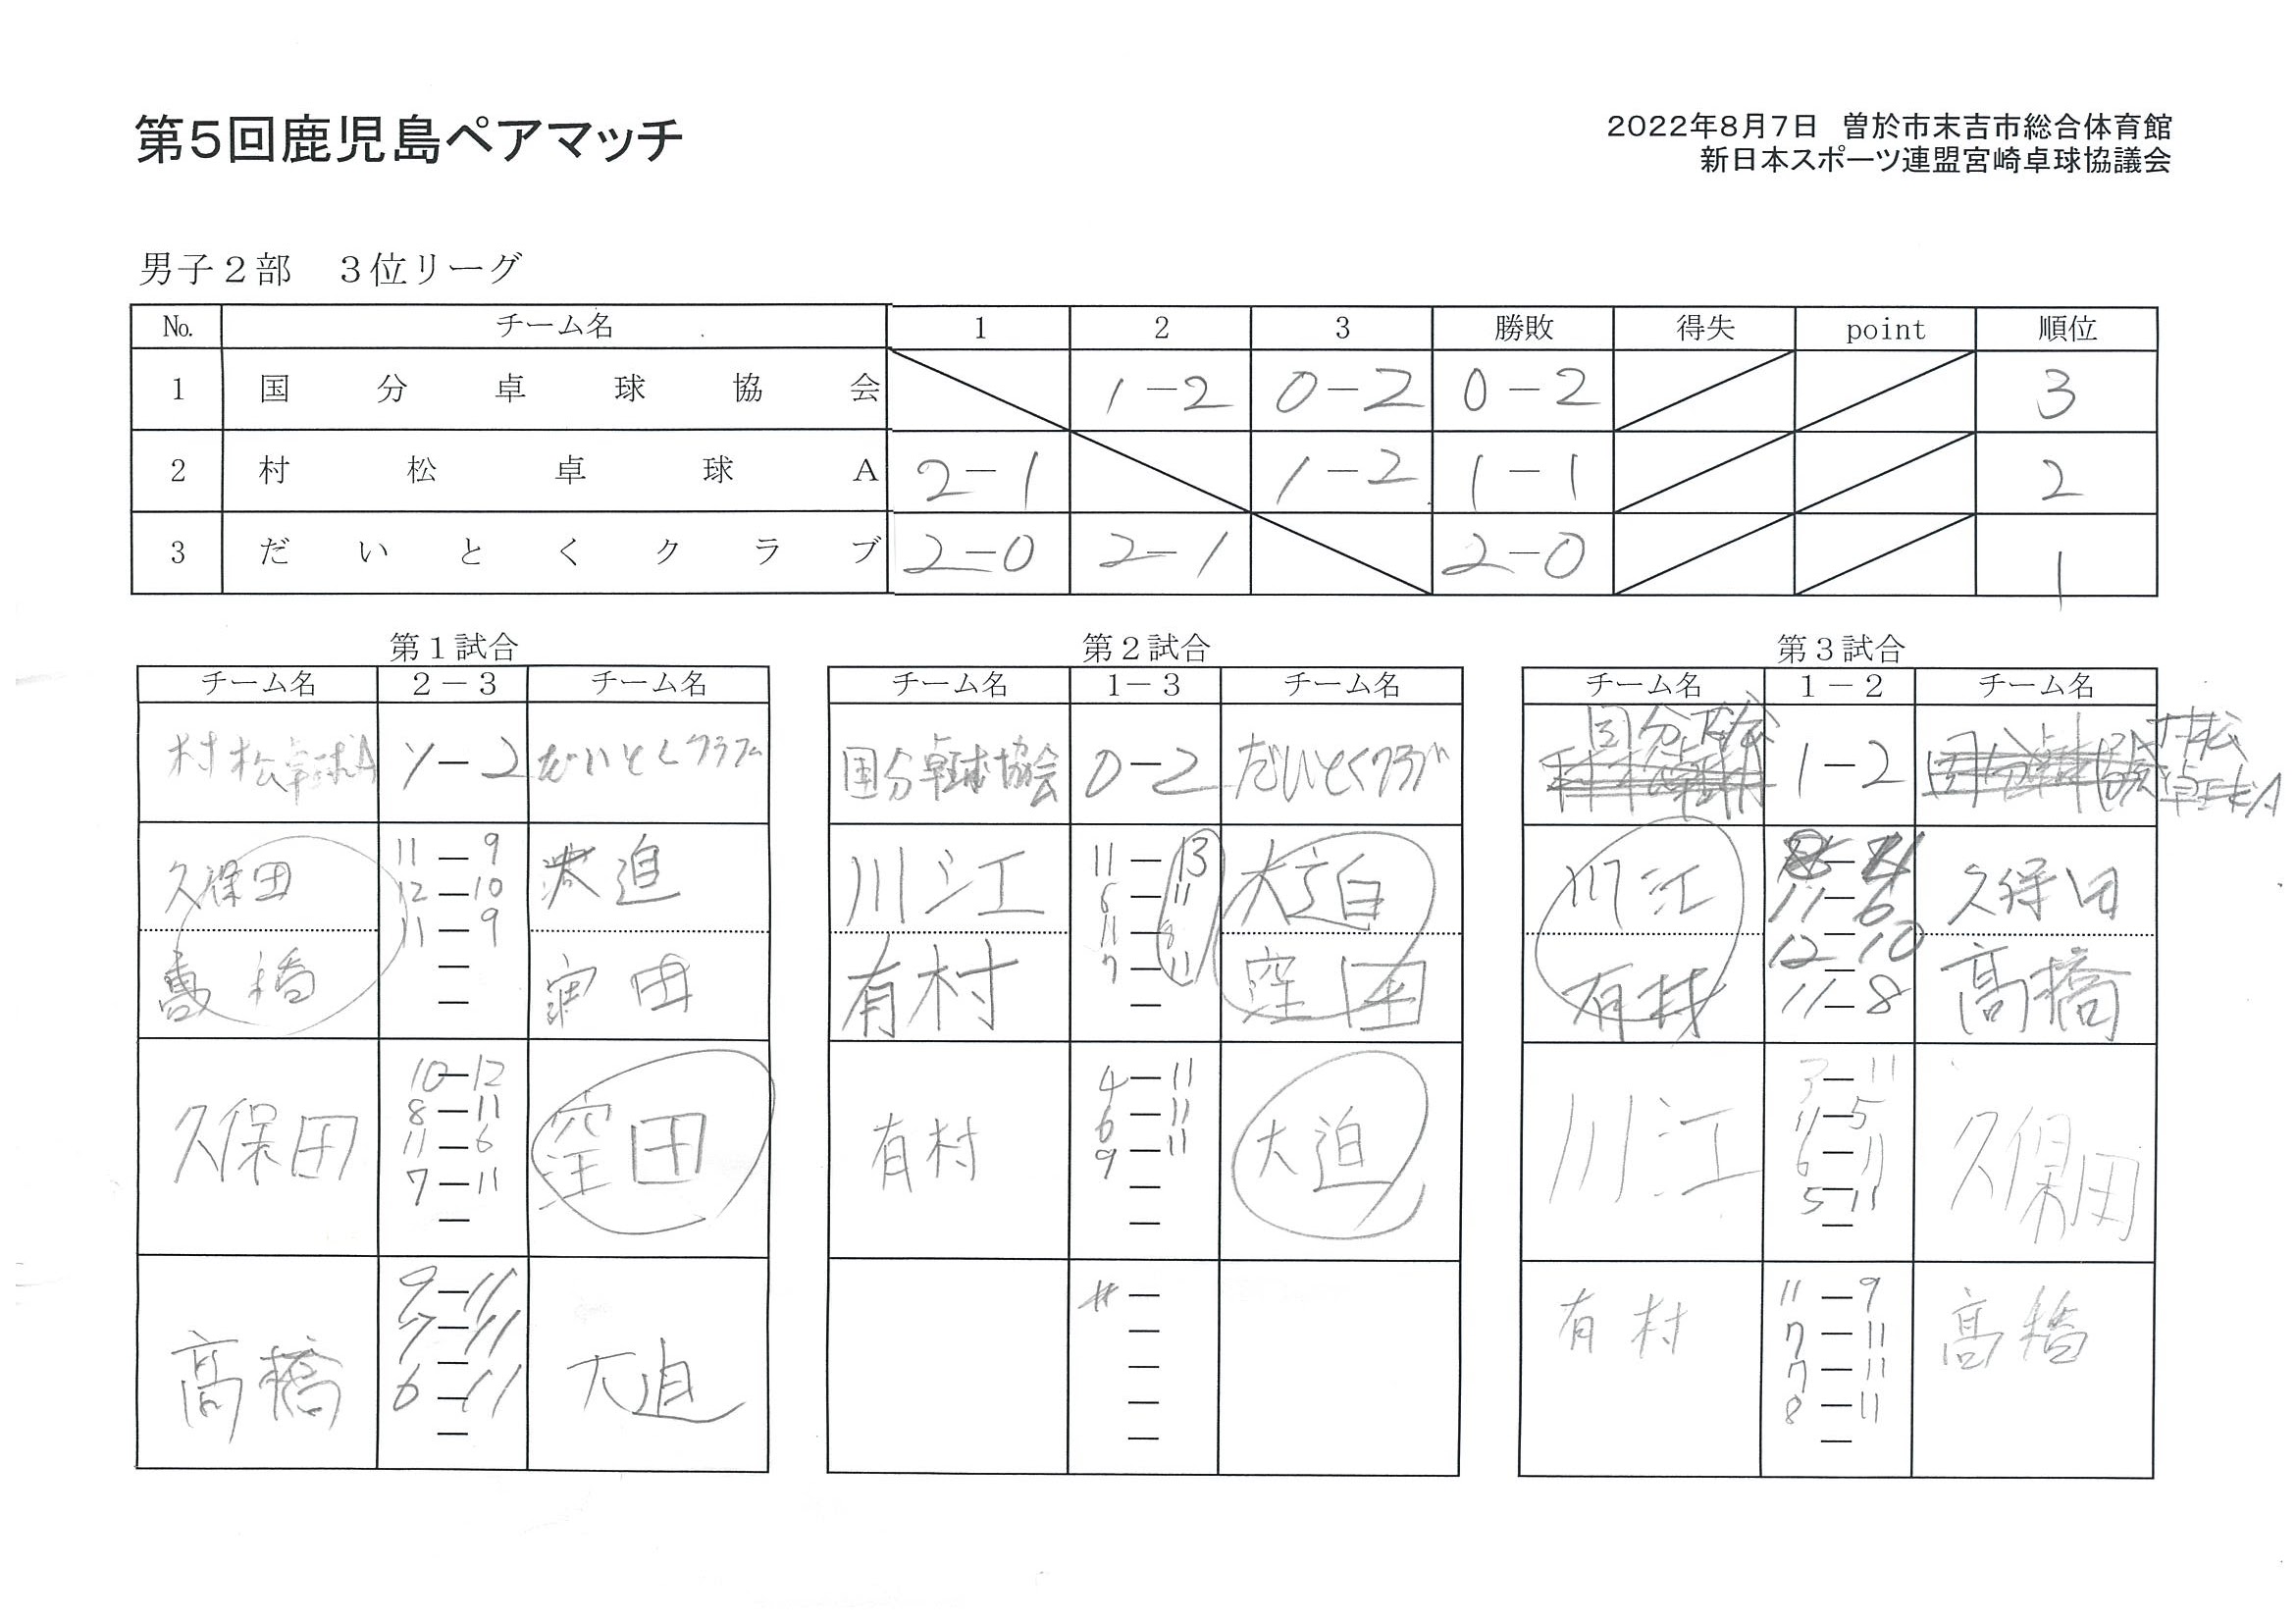 第5回鹿児島ペアマッチ
2022年8月7日 曽於市末吉市総合体育館
新日本スポーツ連盟宮崎卓球協議会
男子2部 3位リーグ
No. チーム名 1 2 3 勝敗 得失 point 順位
1 国分卓球協会 1-2 0-2 0-2 3
2 村松卓球A 2-1 1-2 1-1 2
3 だいとくクラブ 2-0 2-1 2-0 1
第1試合
チーム名 2-3 チーム名
村松卓球A 1-2 だいとくクラブ
久保田 11-9 大迫
12-10
11-9
髙橋 窪田
久保田 10-12 窪田
8-11
11-6
7-11
髙橋 9-11 大迫
7-11
6-11
第2試合
チーム名 1-3 チーム名
国分卓球協会 0-2 だいとくクラブ
川江 11-13 大迫
6-11
11-8
有村 7-11 窪田
有村 4-11 大迫
6-11
9-11
第3試合
チーム名 1-2 チーム名
国分 1-2 村松卓球A
川江 久保田
11-6
12-10
有村 11-8 髙橋
川江 7-11 久保田
11-5
6-11
5-11
有村 11-9 髙橋
7-11
7-11
8-11